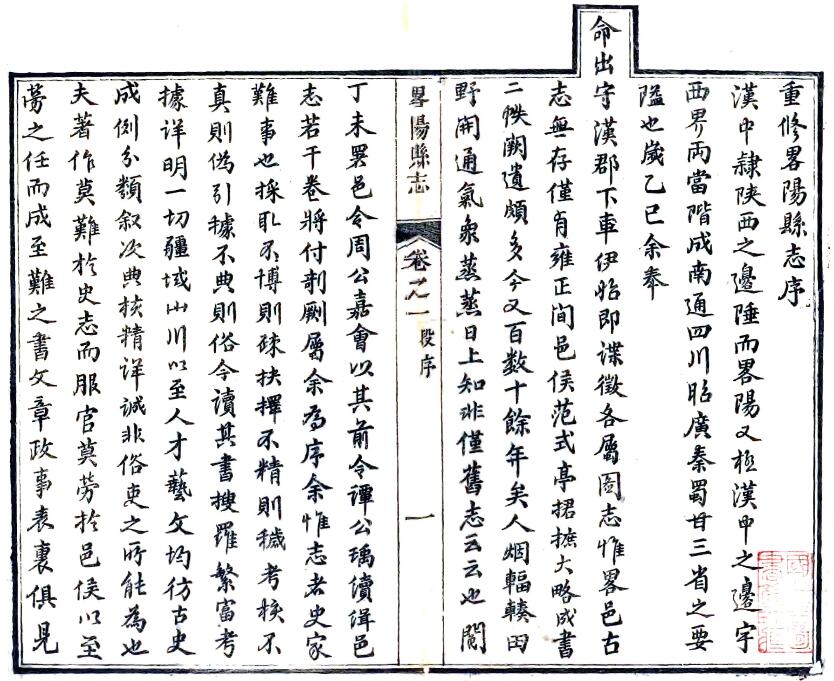 重修畧陽縣志序
漢中隸陝西之邊陲而畧陽又極漢中之邊宇
西界兩當階成南通四川昭廣秦蜀甘三省之要
隘也歲乙巳余奉
命出守漢郡下車伊始即諜徵各屬圖志惟畧邑古
志無存僅有雍正间邑侯范式亭捃摭大略成書
二帙闕遺頗多今又百数十餘年矣人烟輻輳田
野開通氣象蒸蒸日上知非僅舊志云云也閹
畧陽縣志
卷之一 段序
一
丁未署邑令周公嘉會以其前令譚公瑀續緝邑
志若干卷將付剞劂屬余為序余惟志者史家
難事也採取不博則疎抉擇不精則穢考核不
真則僞引據不典則俗今讀其書搜羅繁富考
據详明一切疆域山川以至人才藝文均彷古史
成例分類叙次典核精详誠非俗吏之所能為也
夫著作莫難於史志而服官莫勞於邑侯以至
勞之任而成至難之書文章政事表裏俱見